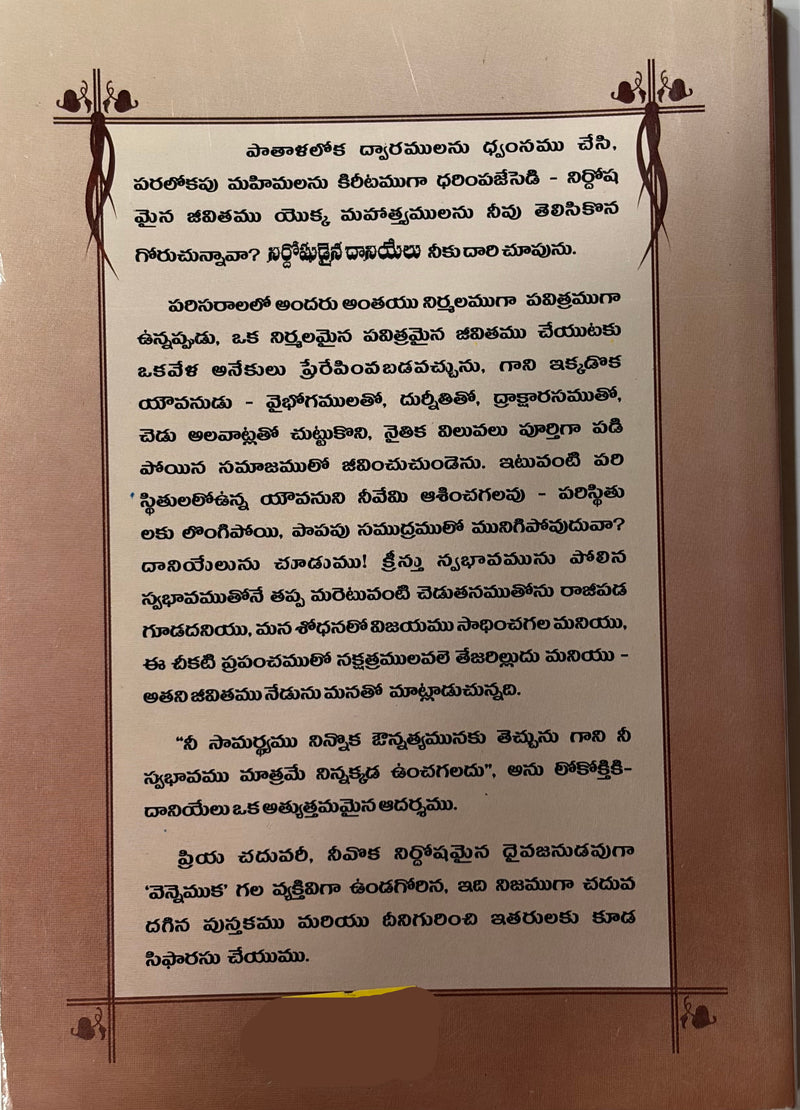 పాతాళలోక ద్వారములను ధ్వంసము చేసి,
పరలోకపు మహిమలను కిరీటముగా ధరింపజేసెడి – నిర్దోష
మైన జీవితము యొక్క మహాత్మ్యములను నీవు తెలిసికొన
గోరుచున్నావా? నిర్దోషుడైన దానియేలు నీకు దారి చూపును.
పరిసరాలలో అందరు అంతయు నిర్మలముగా పవిత్రముగా
ఉన్నప్పుడు, ఒక నిర్మలమైన పవిత్రమైన జీవితము చేయుటకు
ఒకవేళ అనేకులు ప్రేరేపింపబడవచ్చును, గాని ఇక్కడొక
యౌవనుడు – వైభోగములతో, దుర్నీతితో, ద్రాక్షారసముతో,
చెడు అలవాట్లతో చుట్టుకొని, నైతిక విలువలు పూర్తిగా పడి
పోయిన సమాజములో జీవించుచుండెను. ఇటువంటి పరి
స్థితులలోఉన్న యౌవనుని నీవేమి ఆశించగలవు – పరిస్థితు
లకు లొంగిపోయి, పాపపు సముద్రములో మునిగిపోవుదువా?
దానియేలును చూడుము! క్రీస్తు స్వభావమును పోలిన
స్వభావముతోనే తప్ప మరెటువంటి చెడుతనముతోను రాజీపడ
గూడదనియు, మన శోధనలో విజయము సాధించగల మనియు,
ఈ చీకటి ప్రపంచములో నక్షత్రములవలె తేజరిల్లుదు మనియు –
అతని జీవితము నేడును మనతో మాట్లాడుచున్నది.
“నీ సామర్థ్యము నిన్నొక ఔన్నత్యమునకు తెచ్చును గాని నీ
స్వభావము మాత్రమే నిన్నక్కడ ఉంచగలదు”, అను లోకోక్తికి–
దానియేలు ఒక అత్యుత్తమమైన ఆదర్శము.
ప్రియ చదువరీ, నీవొక నిర్దోషమైన దైవజనుడవుగా
‘వెన్నెముక’ గల వ్యక్తివిగా ఉండగోరిన, ఇది నిజముగా చదువ
దగిన పుస్తకము మరియు దీనిగురించి ఇతరులకు కూడ
సిఫారసు చేయుము.